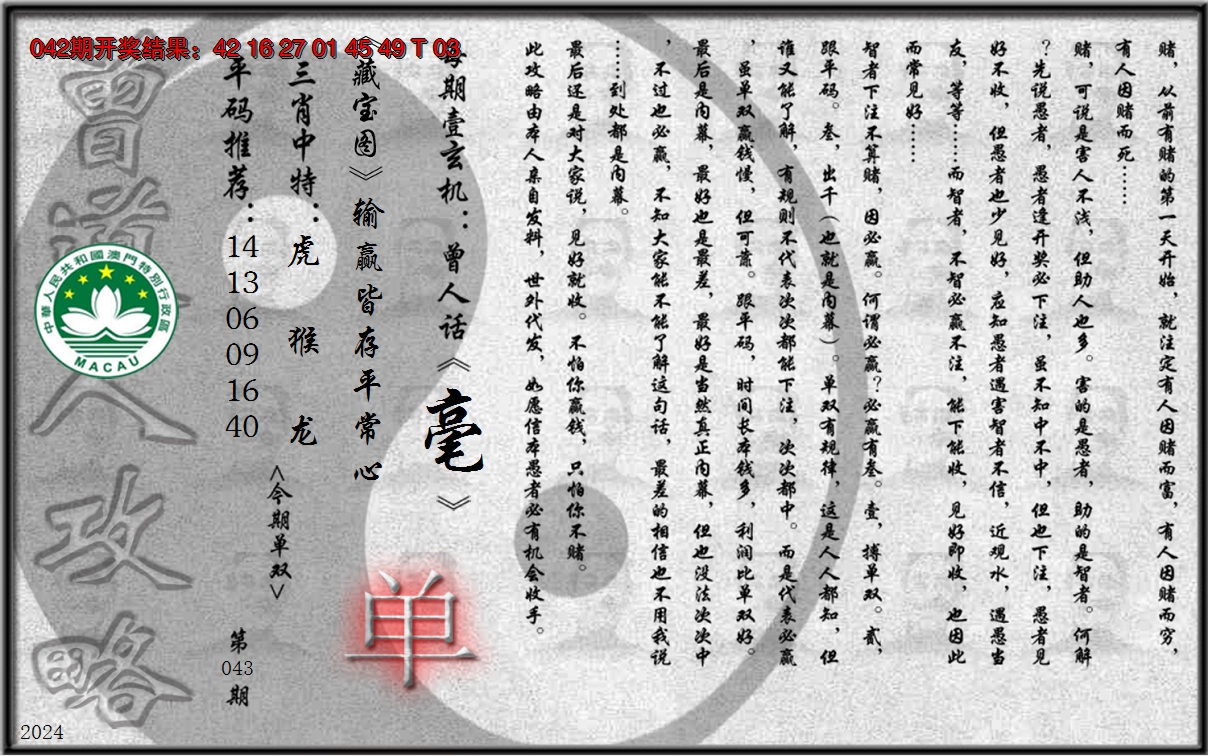 042期开奖结果：42 16 27 01 45 49 T 03
赌，从前有赌的第一天开始，就注定有人因赌而富，有人因赌而穷，
有人因赌而死……
赌，可说是害人不浅，但助人也多。害的是愚者，助的是智者。何解
？先说愚者，愚者逢开奖必下注，虽不知中不中，但也下注，愚者见
好不收，但愚者也少见好，应知愚者遇害智者不信，近观水，遇愚当
友，等等……而智者，不智必赢不注，能下能收，见好即收，也因此
而常见好……
智者下注不算赌，因必赢。何谓必赢？必赢有叁。壹，搏单双。贰，
跟平码。叁，出千（也就是内幕）。单双有规律，这是人人都知，但
谁又能了解，有规则不代表次次都能下注，次次都中。而是代表必赢
，虽单双赢钱慢，但可靠。跟平码，时间长本钱多，利润比单双好。
最后是内幕，最好也是最差，最好是当然真正内幕，但也没法次次中
，不过也必赢，不知大家能不能了解这句话，最差的相信也不用我说
……到处都是内幕。
最后还是对大家说，见好就收。不怕你赢钱，只怕你不赌。
此攻略由本人亲自发料，世外代发，如愿信本愚者必有机会收手。
每期壹玄机：曾人话《毫》
《藏宝图》输赢皆存平常心
单
三肖中特：虎 猴 龙
<今期单双>
平码推荐：14 13 06 09 16 40
第043期
曾道人攻略
中華人民共和國澳門特別行政區
MACAU
2024